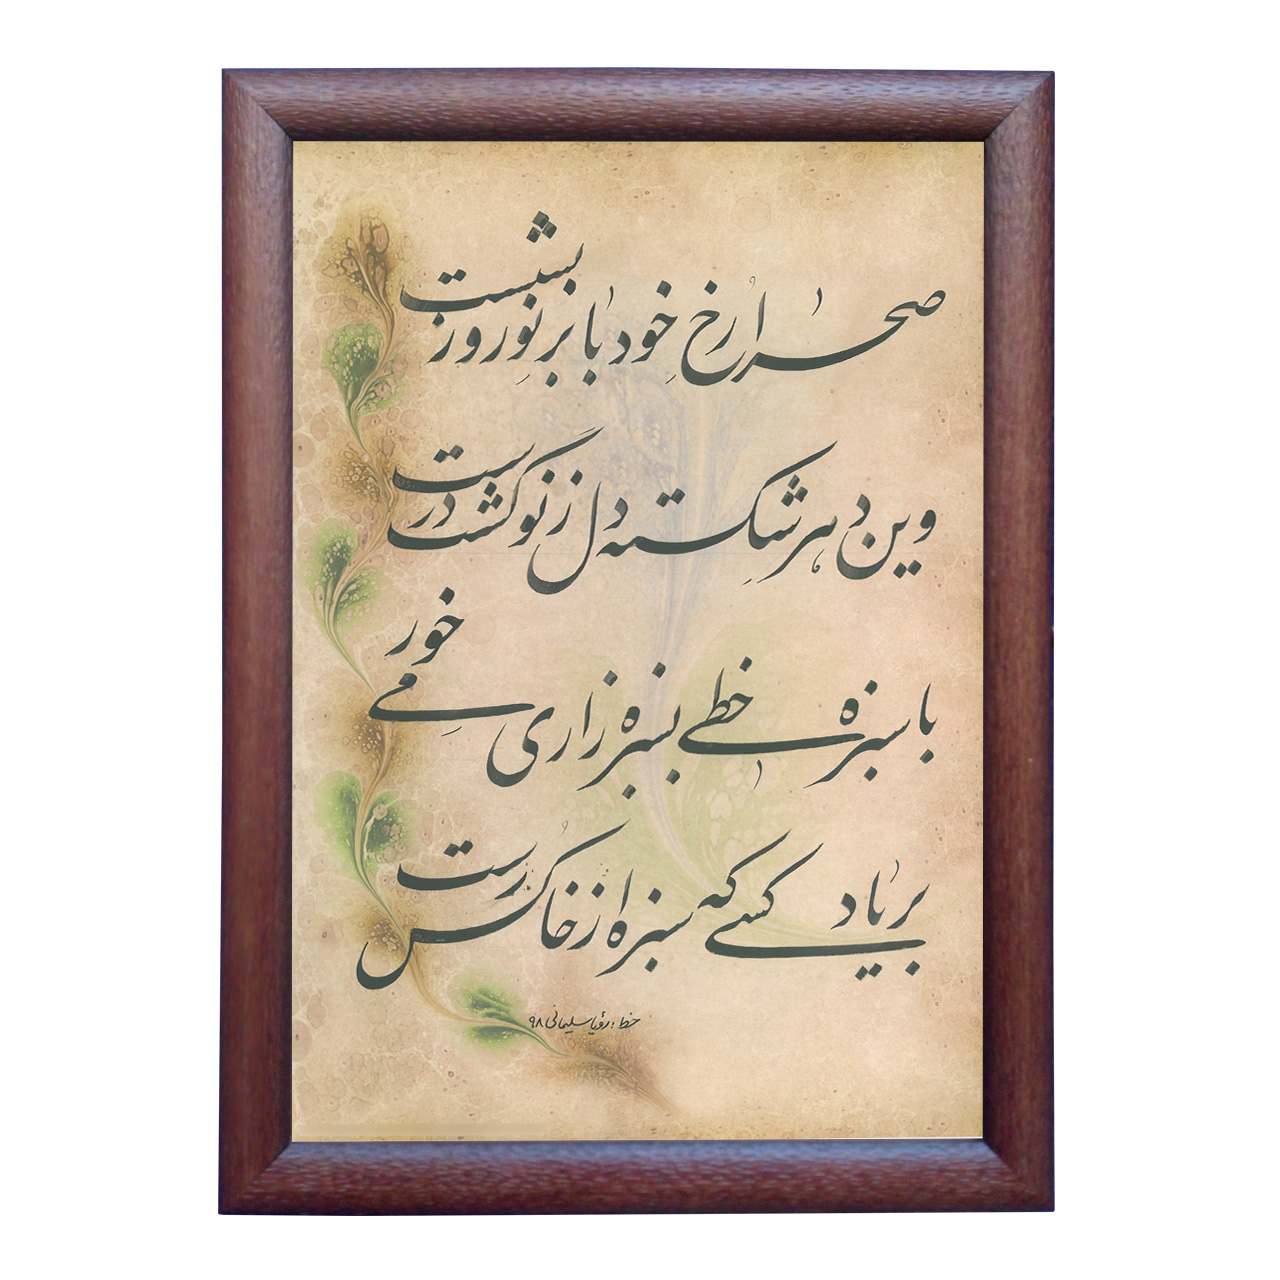 صحرا رخ خود بابر نوروز بشست
وین دهر شکسته دل ز نو گشت درست
با سبزه خطی بسبزه زاری می خور
بر یاد کسی که سبزه از خاکش رست
خط: رؤیا سلیمانی ۹۸